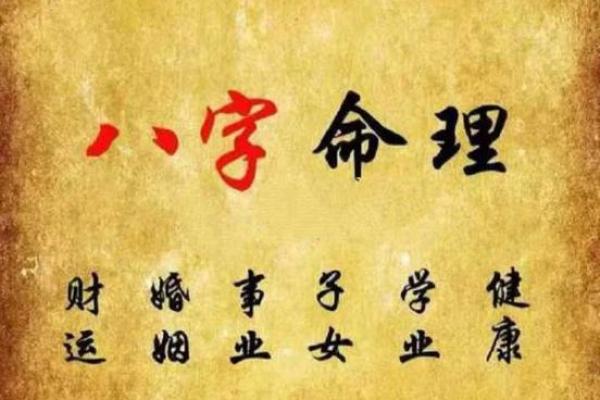 八字命理
财运 婚姻 事业 子女 学业 健康